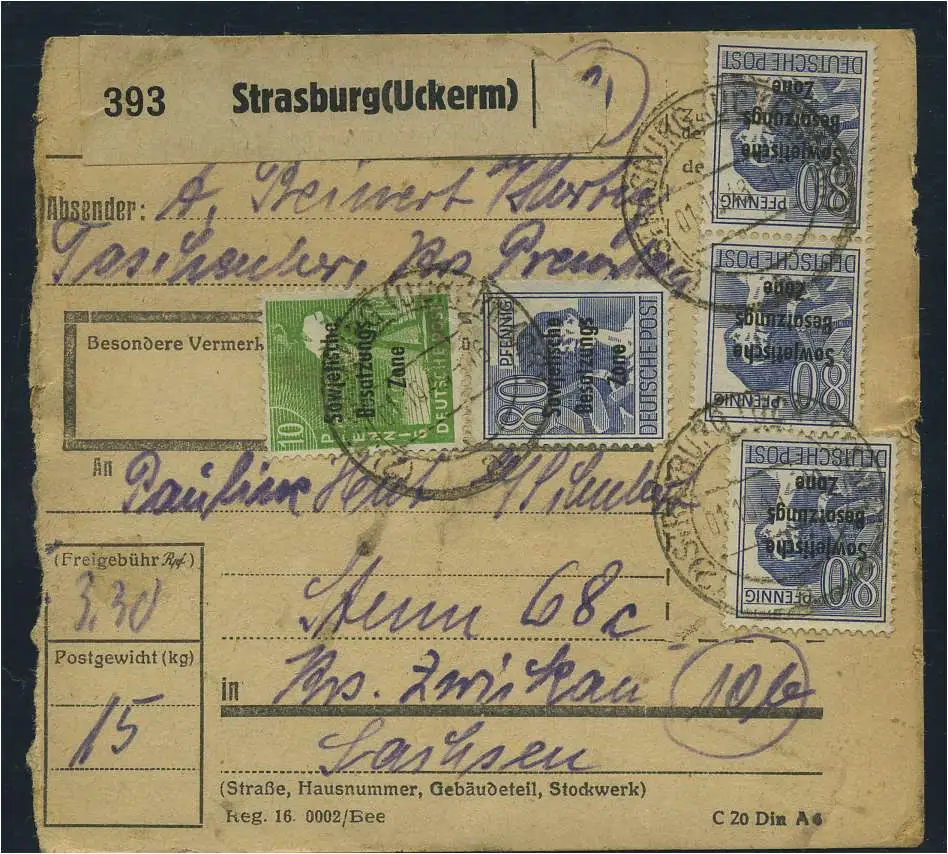 393 Strasburg(Uckerm)
Absender: A. Reinert
Taschenberg, Krs Prenzlau
Zu
de
de
DEUTSCHE POST
Sowjetische
Besatzungs
Zone
80 PFENNIG
DEUTSCHE POST
Sowjetische
Besatzungs
Zone
80 PFENNIG
DEUTSCHE POST
Sowjetische
Besatzungs
Zone
80 PFENNIG
Besondere Vermerk
10 PFENNIG DEUTSCHE POST
Sowjetische
Besatzungs
Zone
80 PFENNIG DEUTSCHE POST
Sowjetische
Besatzungs
Zone
An
(Freigebühr Rpf.)
3,30
Stenn 68c
Postgewicht (kg)
15
in Krs. Zwickau 10b
Sachsen
(Straße, Hausnummer, Gebäudeteil, Stockwerk)
Reg. 16. 0002/Bee C 20 Din A 6